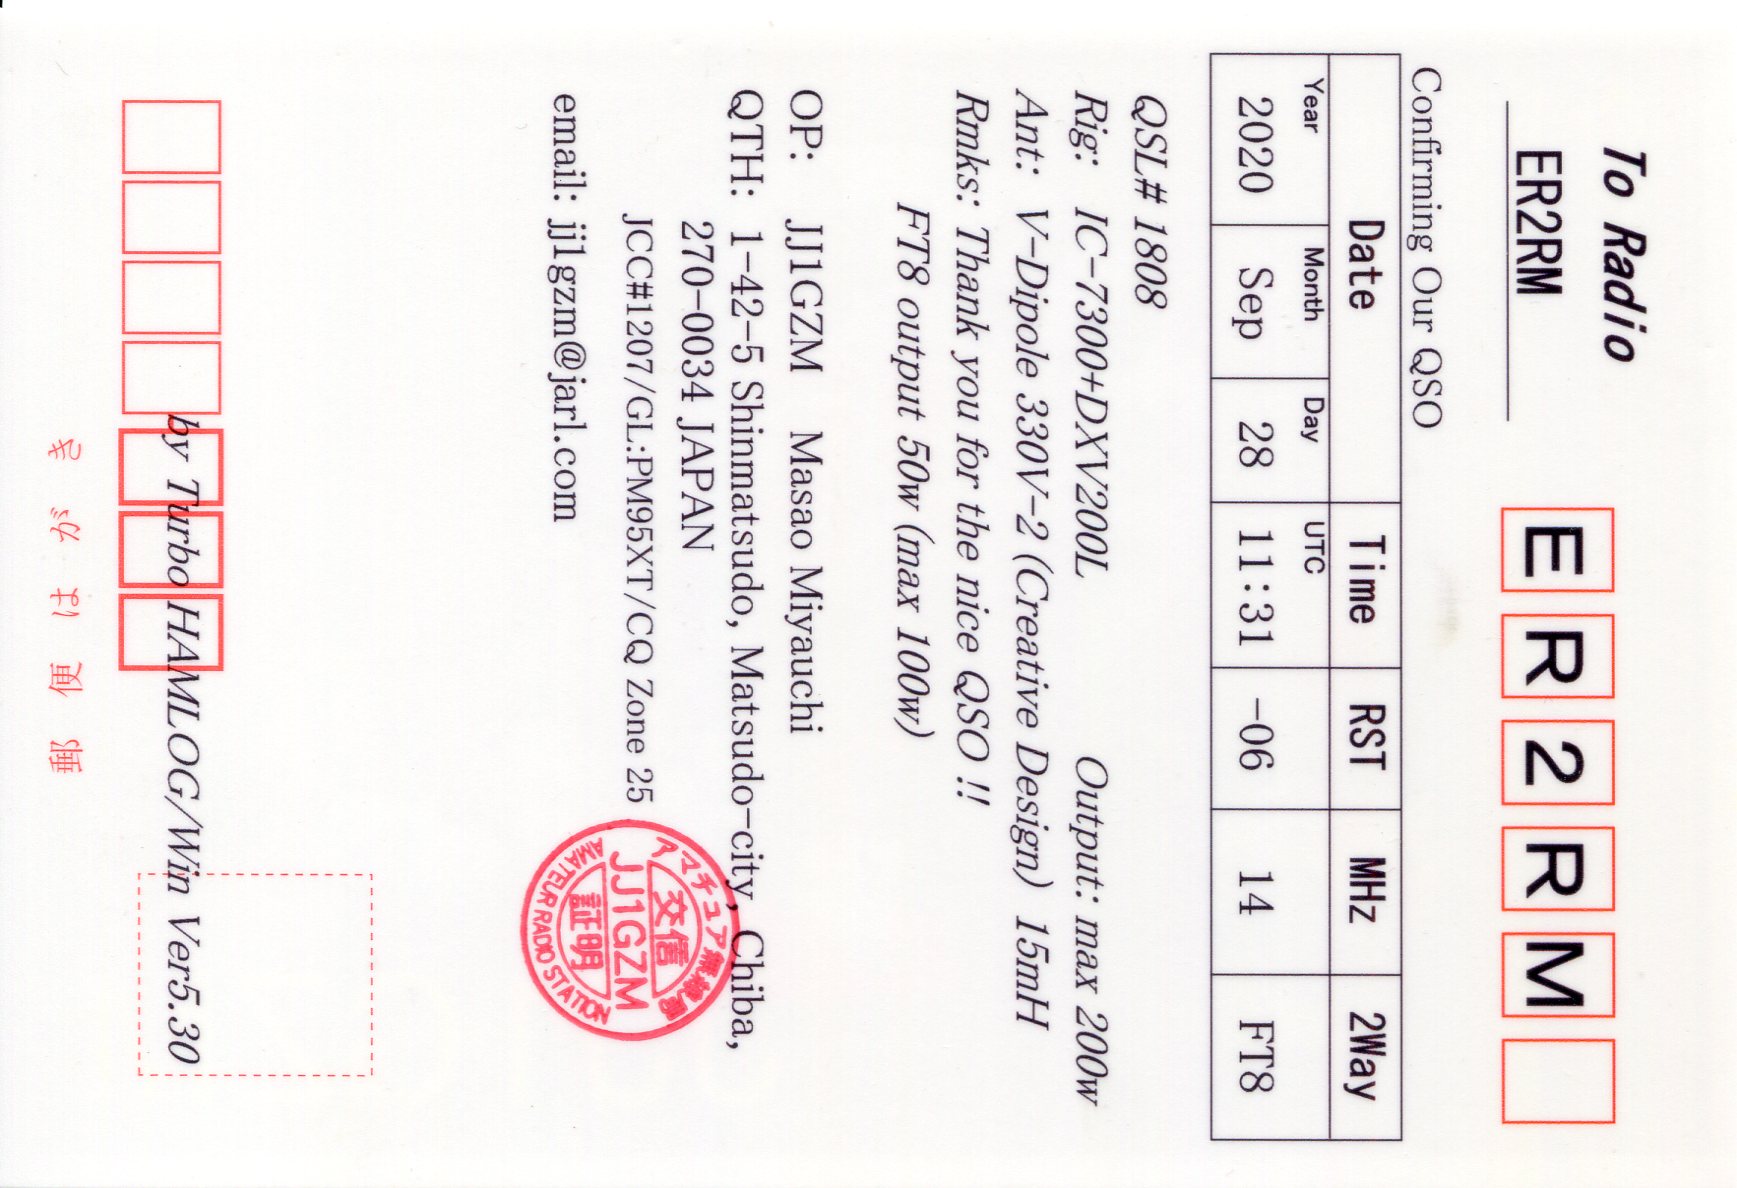 To Radio
ER2RM
E R 2 R M
Confirming Our QSO
Date Time RST MHz 2Way
Year Month Day UTC
2020 Sep 28 11:31 -06 14 FT8
QSL# 1808
Rig: IC-7300+DXV200L Output: max 200w
Ant: V-Dipole 330V-2 (Creative Design) 15mH
Rmks: Thank you for the nice QSO !!
FT8 output 50w (max 100w)
OP: JJ1GZM Masao Miyauchi
QTH: 1-42-5 Shinmatsudo, Matsudo-city, Chiba,
270-0034 JAPAN
JCC#1207/GL:PM95XT/CQ Zone 25
email: jj1gzm@jarl.com
アマチュア無線局
交信
JJ1GZM
証明
AMATEUR RADIO STATION
by Turbo HAMLOG/Win Ver5.30
郵便はがき